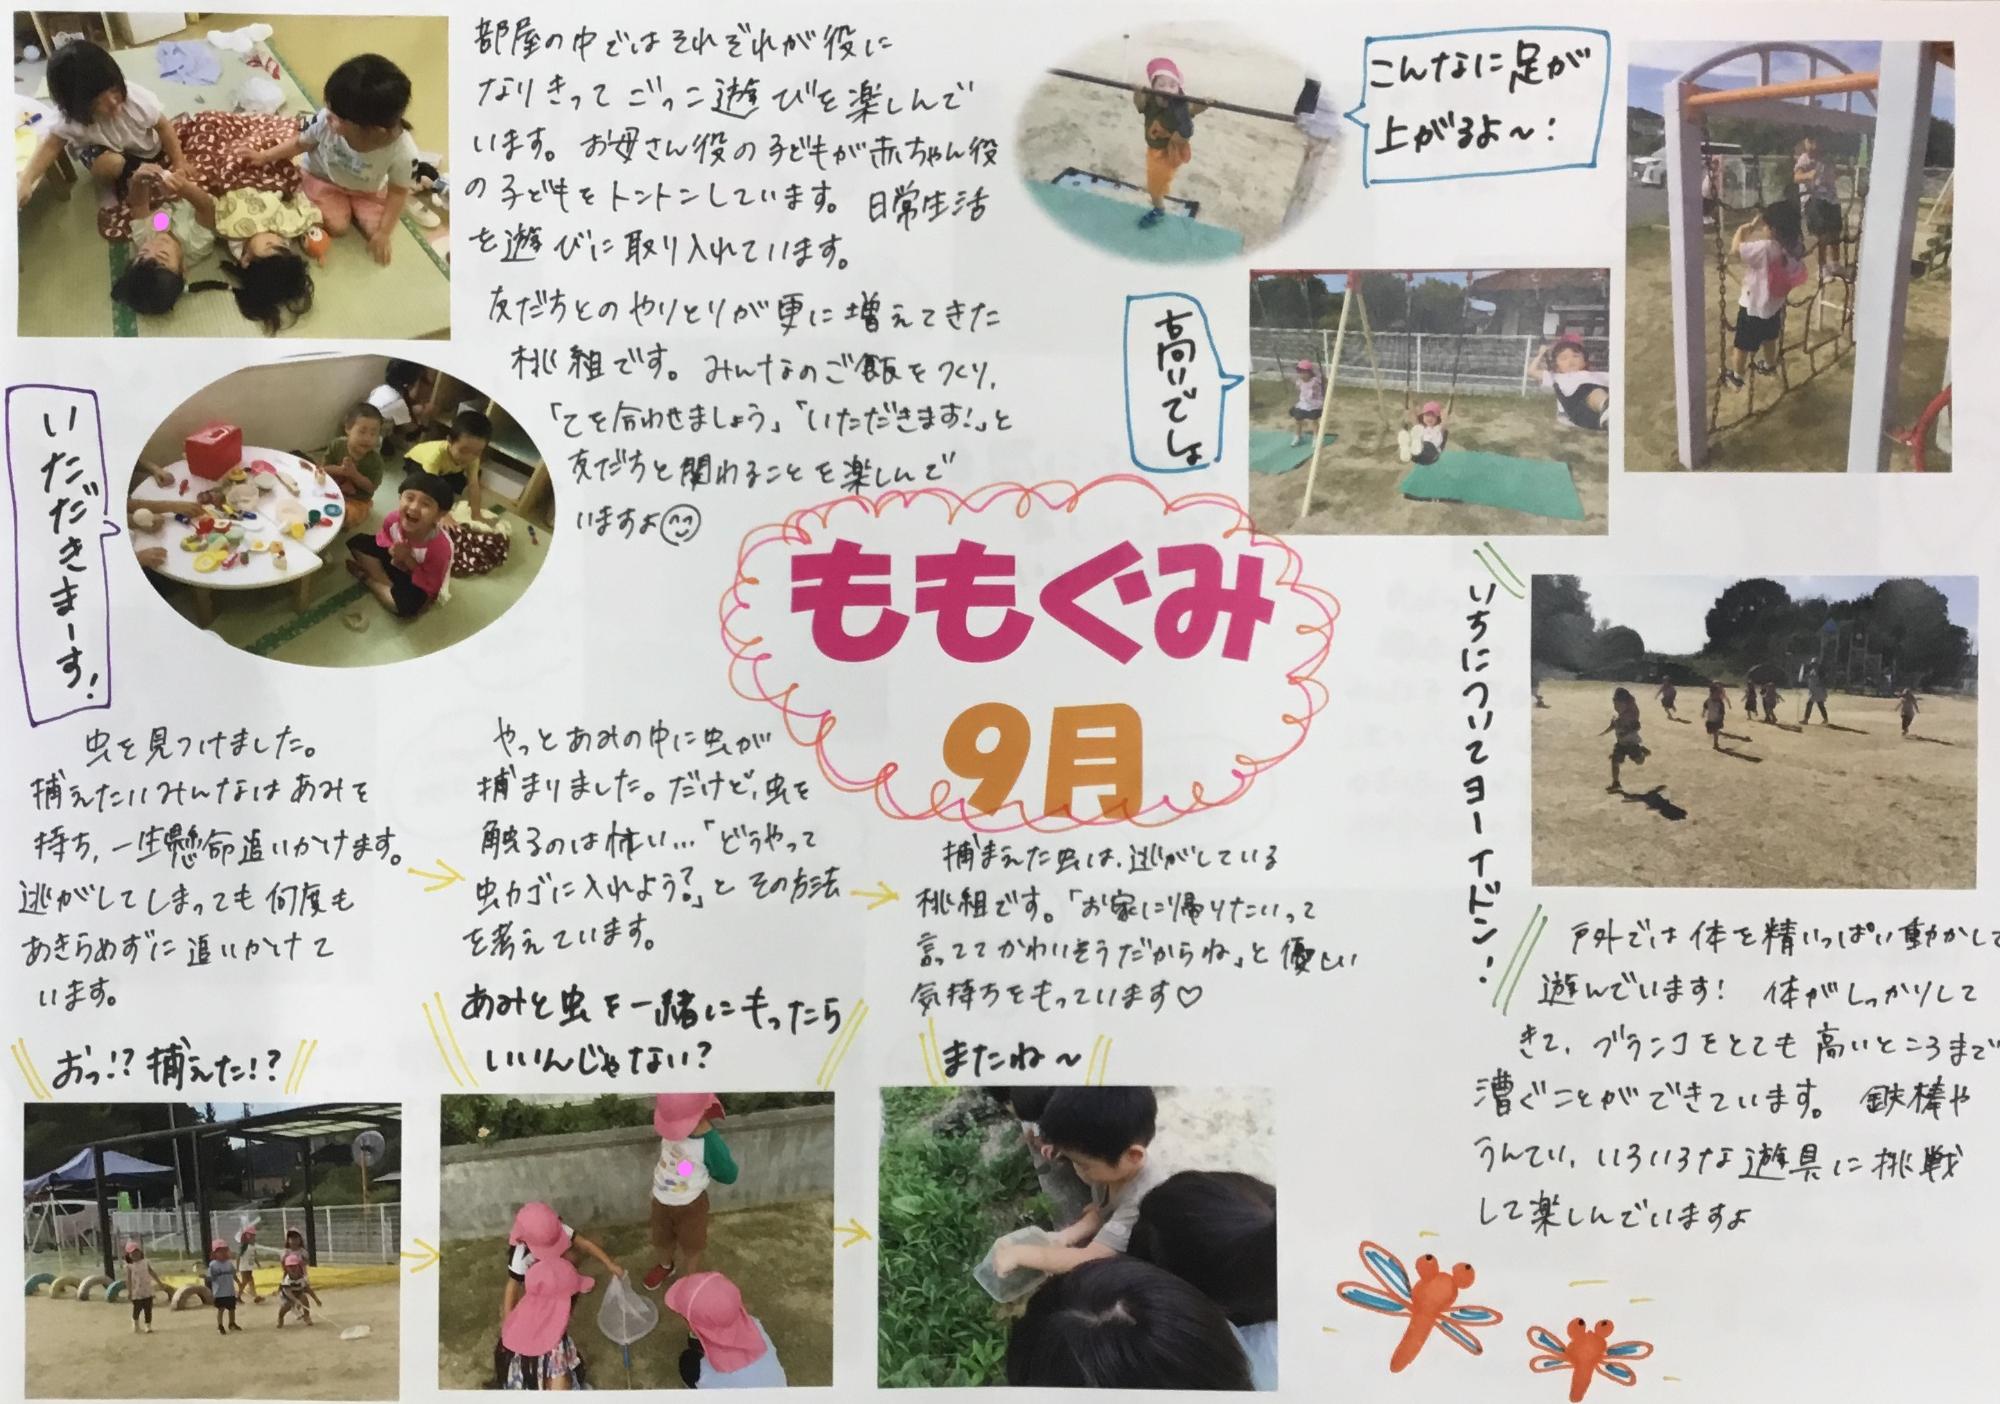 部屋の中ではそれぞれが役に
なりきってごっこ遊びを楽しんで
います。お母さん役の子どもが赤ちゃん役
の子どもをトントンしています。日常生活
を遊びに取り入れています。
友だちとのやりとりが更に増えてきた
桃組です。みんなのご飯をつくり、
「てを合わせましょう」「いただきます!」と
友だちと関わることを楽しんで
いますよ
いただきまーす!
こんなに足が
上がるよ～!
高いでしょ
ももぐみ
9月
いちについてヨーイドン!
戸外では体を精いっぱい動かして
遊んでいます! 体がしっかりして
きて、ブランコをとても高いところまで
漕ぐことができています。鉄棒や
うんてい、いろいろな遊具に挑戦
して楽しんでいますよ
虫を見つけました。
捕えたいみんなはあみを
持ち、一生懸命追いかけます。
逃がしてしまっても何度も
あきらめずに追いかけて
います。
おっ!?捕えた!?
やっとあみの中に虫が
捕まりました。だけど、虫を
触るのは怖い…「どうやって
虫カゴに入れよう?」とその方法
を考えています。
あみと虫を一緒にもったら
いいんじゃない?
捕まえた虫は、逃がしている
桃組です。「お家に帰りたいって
言っててかわいそうだからね」と優しい
気持ちをもっています♡
またね～